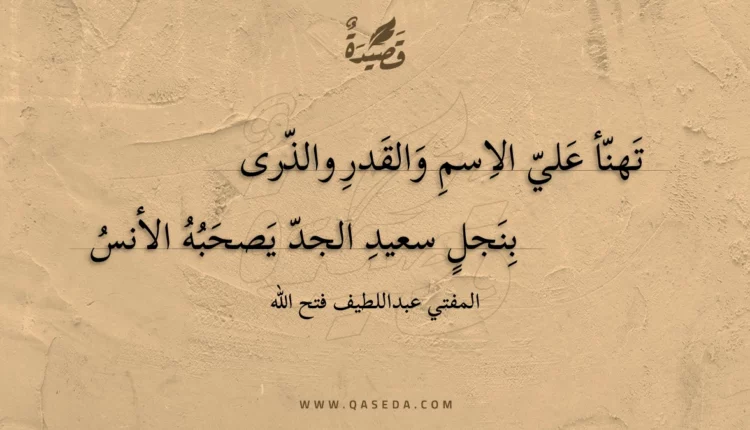 قَصِيدَةٌ
تَهنّأ عَليّ الاِسمِ وَالقَدرِ والذّرى
بِنَجلٍ سعيدِ الجدّ يَصحَبُهُ الأنسُ
المفتي عبداللطيف فتح الله
WWW.QASEDA.COM